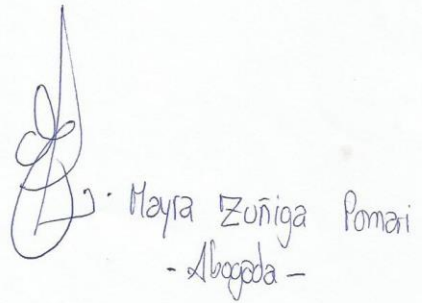 Mayra Zuñiga Pomari
- Abogada -